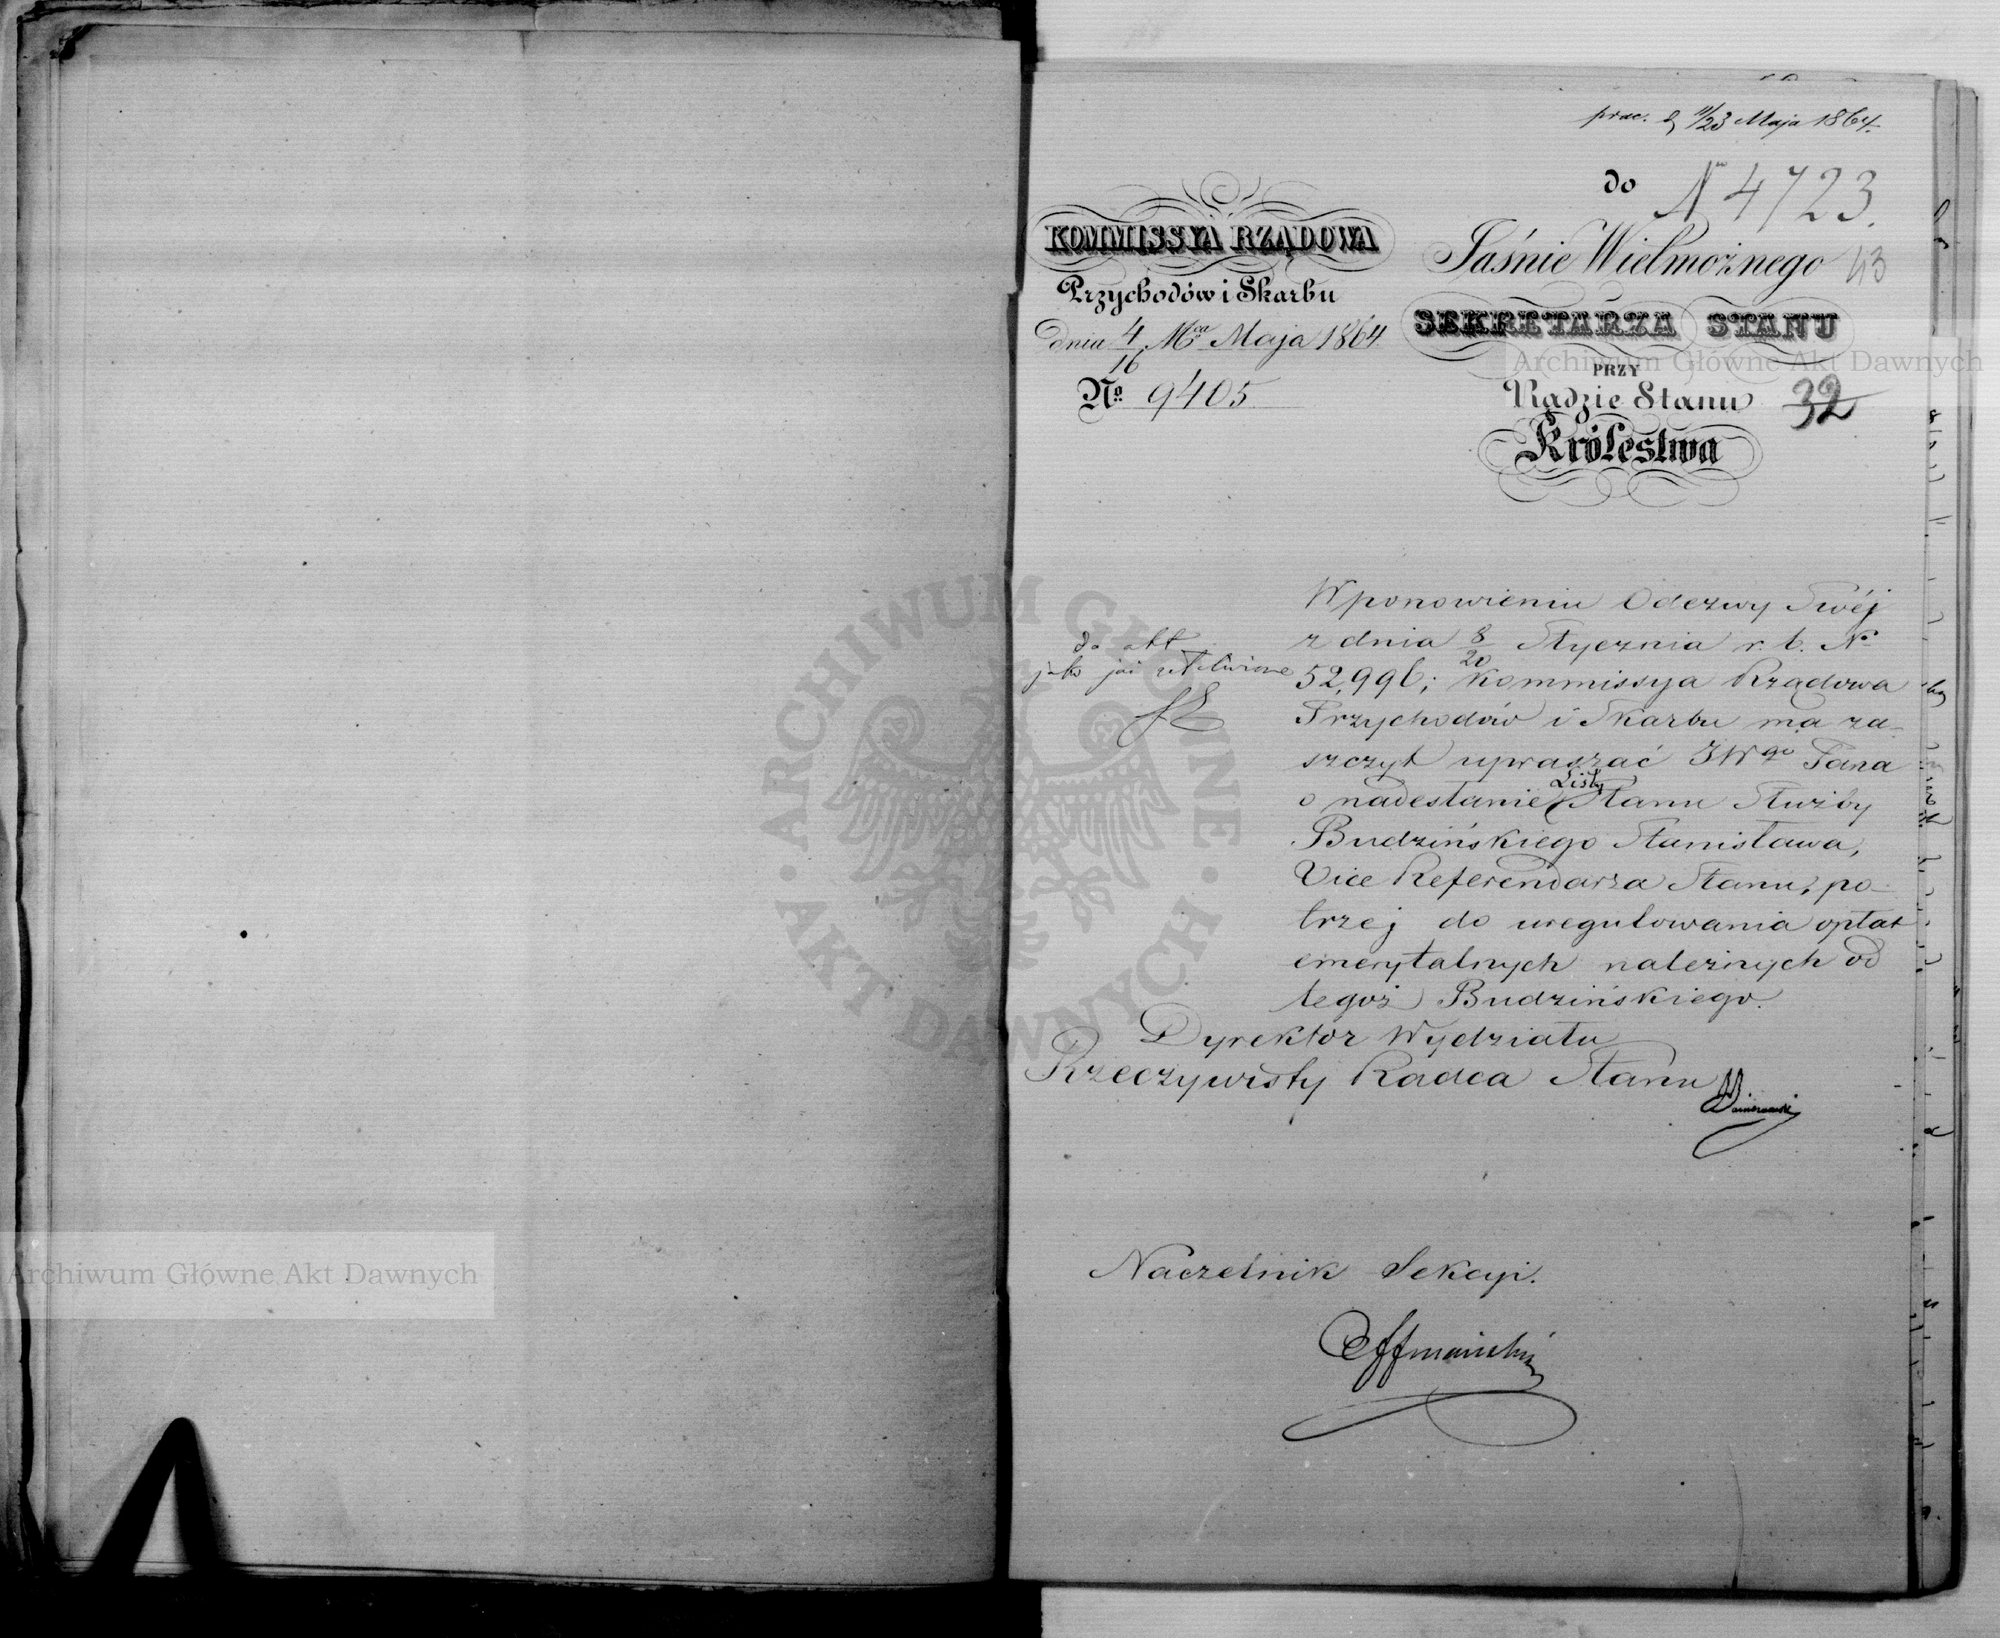 prae. d 11/23 Maja 1864.
do
N 4723.
KOMMISSYA RZĄDOWA
Przychodów i Skarbu
dnia 4/16 Mca Maja 1864
No. 9405
Jaśnie Wielmożnego
43
SEKRETARZA STANU
PRZY
Radzie Stanu
32
Królestwa
W ponowieniu Odezwy Swéj
z dnia 8/20 Stycznia r. b. No
52,996; Kommissya Rządowa
Przychodów i Skarbu ma za-
szczyt upraszać JWgo Pana
o nadesłanie Listy Stanu Służby
Budzińskiego Stanisława,
Vice Referendarza Stanu, po-
trzej do uregulowania opłat
emerytalnych należnych od
tegoż Budzińskiego.
do akt
jako już
Dyrektor Wydziału
Rzeczywisty Radca Stanu
Naczelnik Sekcyi.
Archiwum Główne Akt Dawnych
Archiwum Główne Akt Dawnych
ARCHIWUM GŁÓWNE · AKT DAWNYCH ·